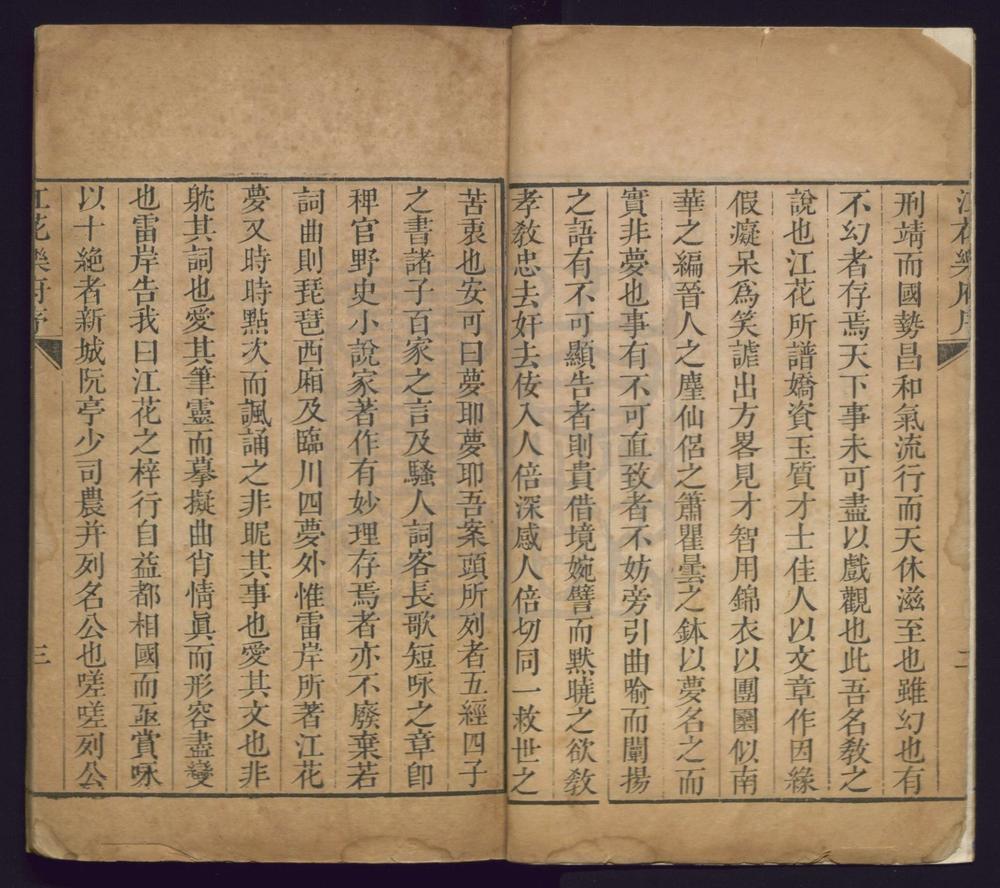 江花樂府序
二
刑靖而國勢昌和氣流行而天休滋至也雖幻也有
不幻者存焉天下事未可盡以戲觀也此吾名敎之
說也江花所譜嬌資玉質才士佳人以文章作因緣
假癡呆爲笑謔出方畧見才智用錦衣以團圞似南
華之編晉人之麈仙侶之簫瞿曇之鉢以夢名之而
實非夢也事有不可直致者不妨旁引曲喻而闡揚
之語有不可顯告者則貴借境婉譬而黙曉之欲敎
孝敎忠去奸去佞入人倍深感人倍切同一救世之
苦衷也安可曰夢耶夢耶吾案頭所列者五經四子
之書諸子百家之言及騷人詞客長歌短咏之章卽
稗官野史小說家著作有妙理存焉者亦不廢棄若
詞曲則琵琶西廂及臨川四夢外惟雷岸所著江花
夢又時時點次而諷誦之非眤其事也愛其文也非
躭其詞也愛其筆靈而摹擬曲肖情眞而形容盡變
也雷岸告我曰江花之梓行自益都相國而亟賞咏
以十絶者新城阮亭少司農并列名公也嗟嗟列公
江花樂府序
三